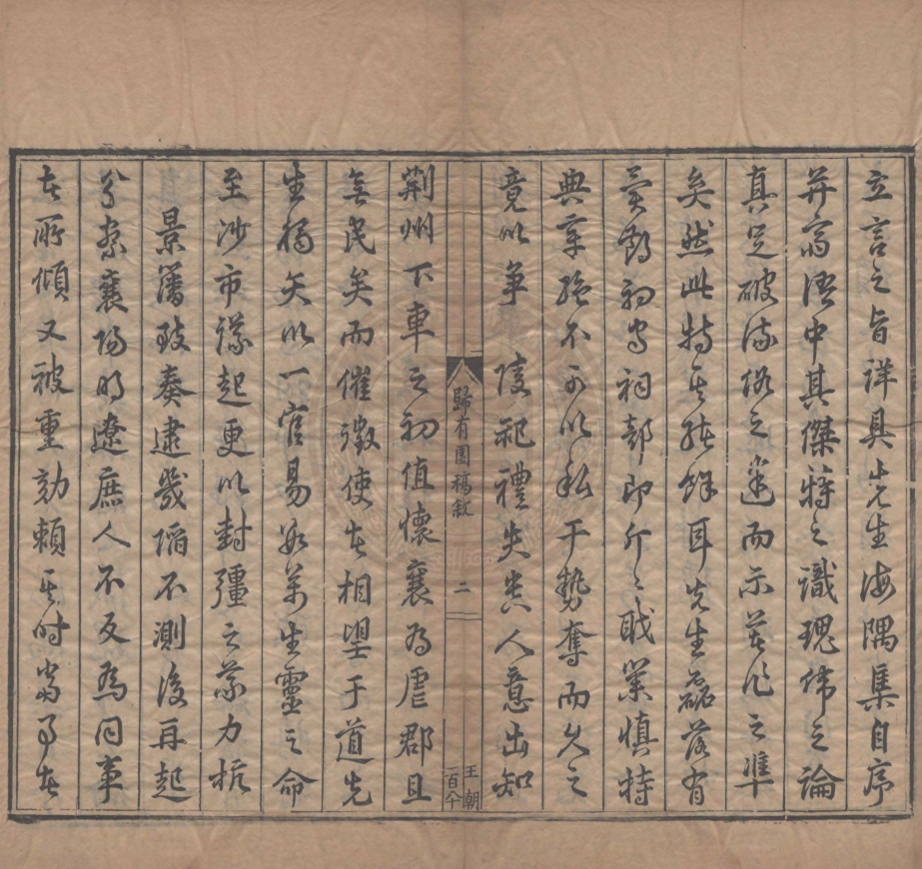 立言之旨詳具先生海隅集自序
并齋語中其傑特之識瑰偉之論
真足破流俗之迷而示著作之準
矣然此特其緒餘耳先生磊落有
奇節初官祠部即斤〻職業慎持
典章絕不可以私干勢奪而久之
竟以爭 陵祀禮失貴人意出知
歸有園稿敘
二
王朝
荊州下車之初值懷襄為虐郡且
無民矣而催徵使者相望于道先
生矯矢以一官易數萬生靈之命
至沙市議起更以封疆之力抗
景藩致奏逮幾陷不測後再起
分臬襄陽明遼庶人不反為同事
者所傾又被重劾賴其時當事者